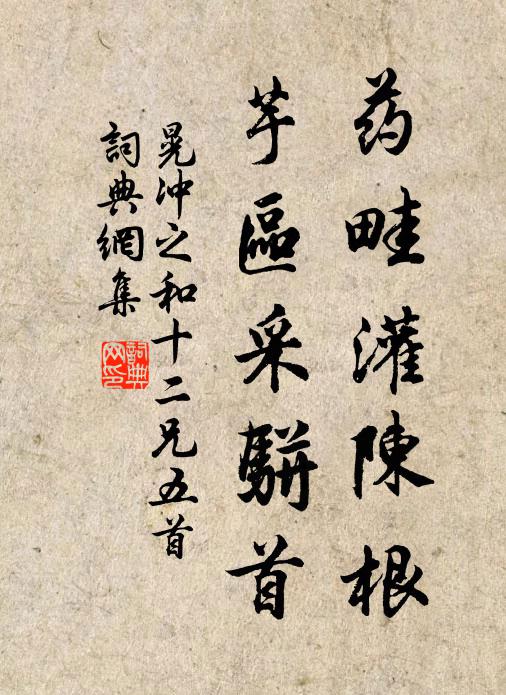 药畦灌陳根
芋區采駢首
晁冲之和十二兄五首
詞典網集
詞典网印